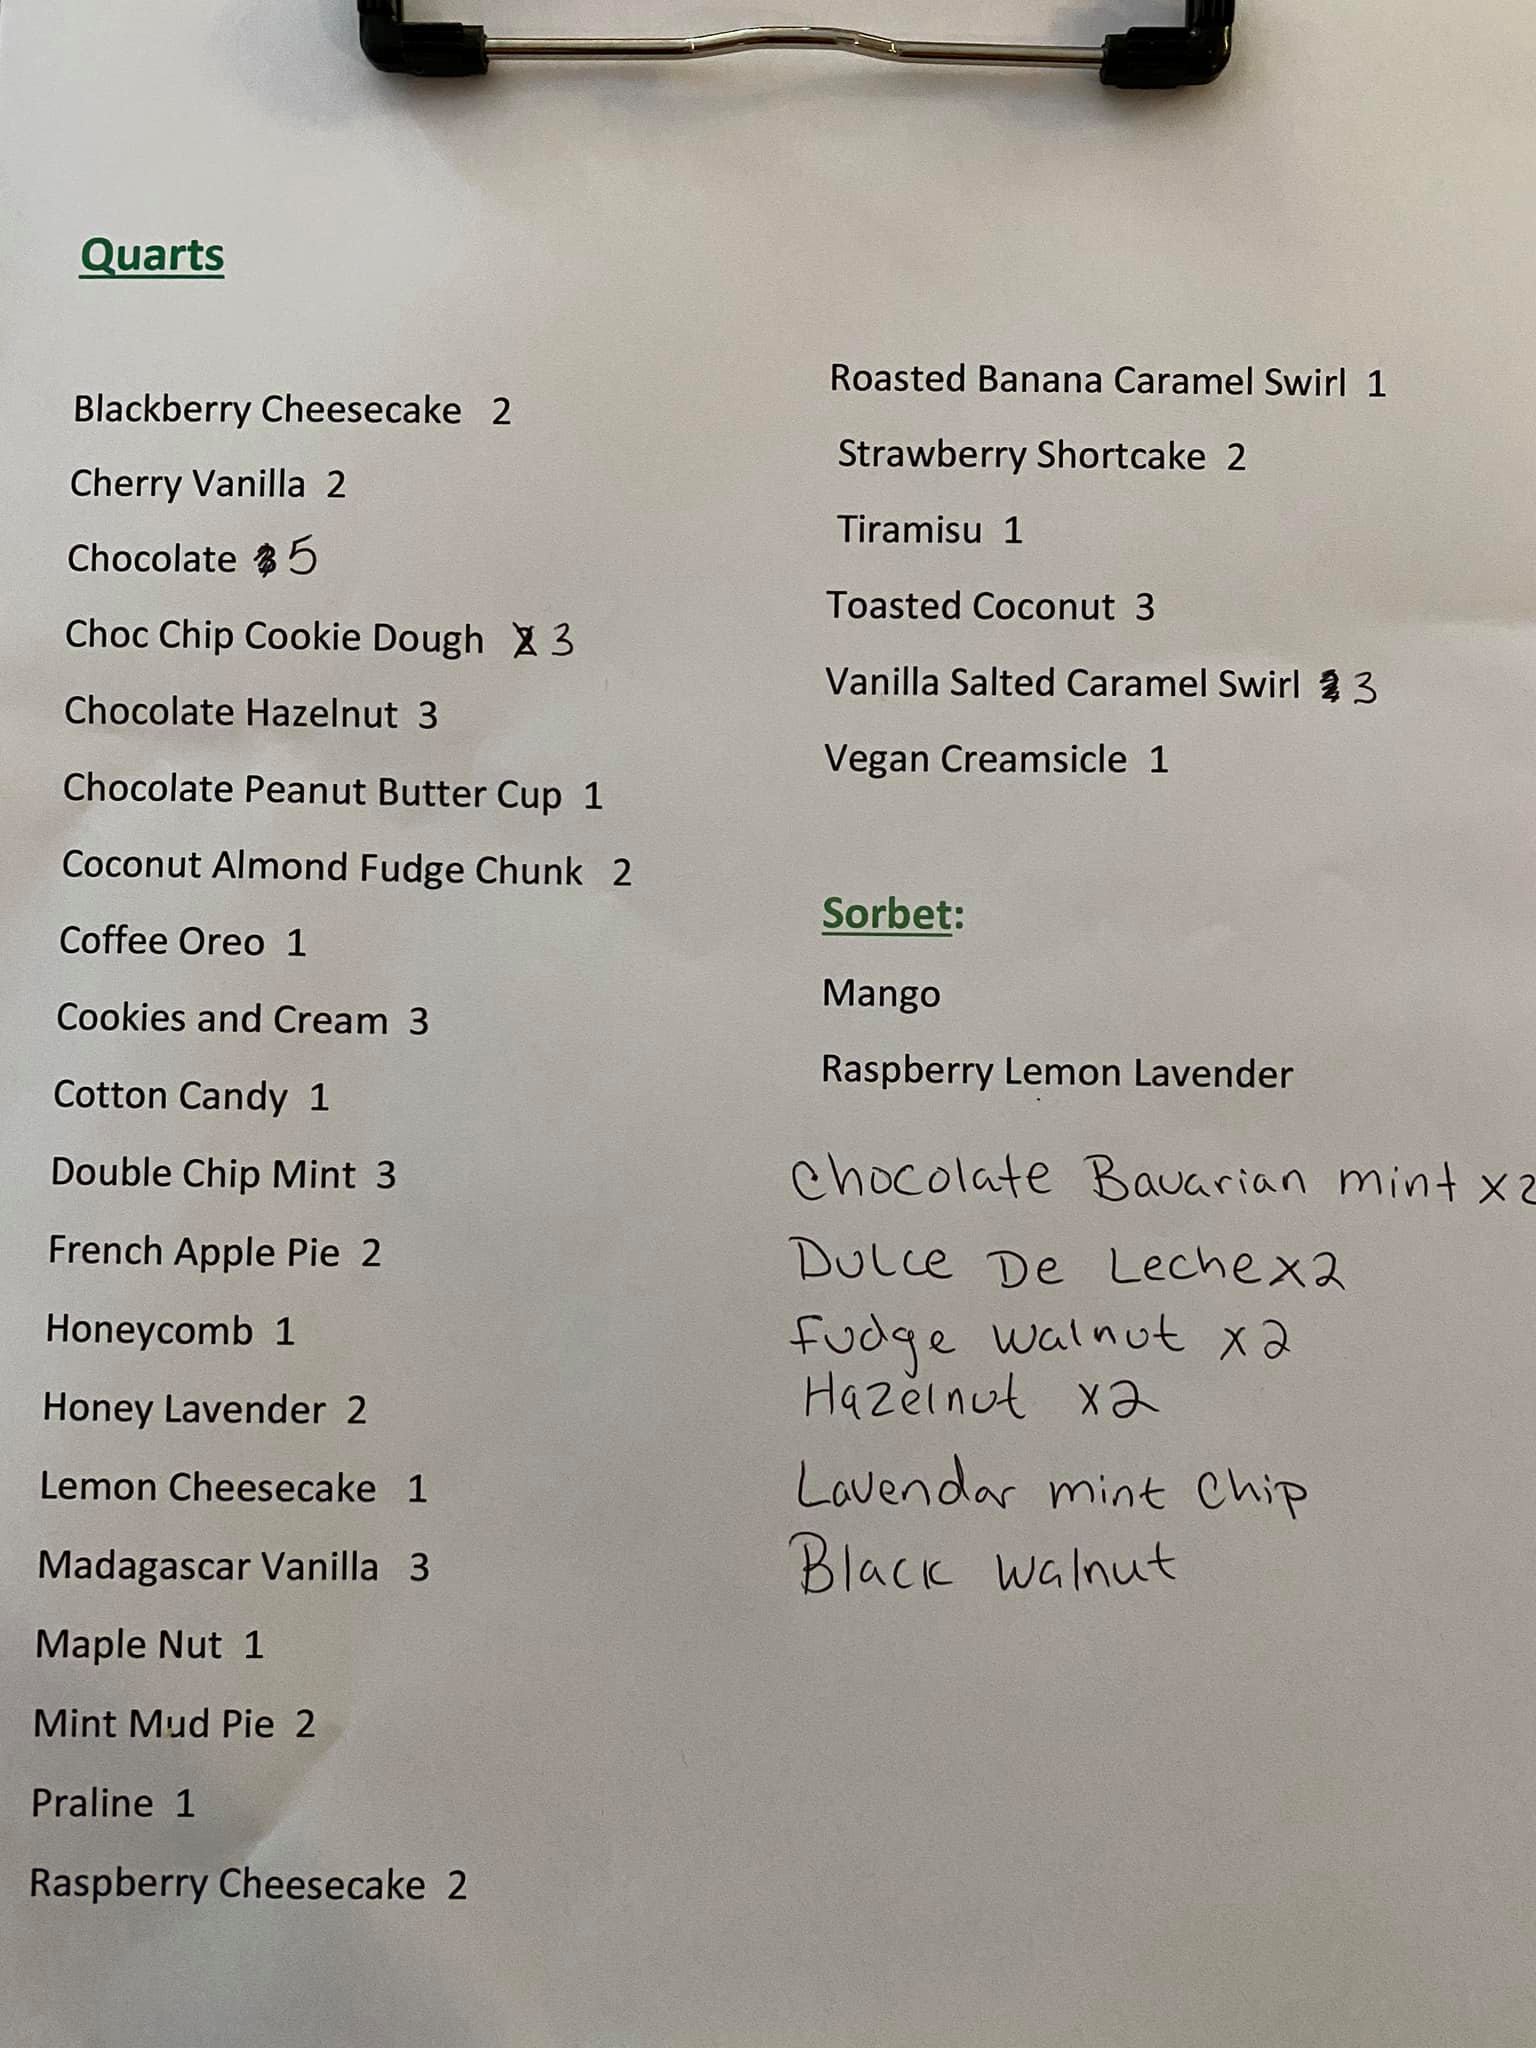 Quarts
Blackberry Cheesecake 2
Cherry Vanilla 2
Chocolate 5
Choc Chip Cookie Dough 2 3
Chocolate Hazelnut 3
Chocolate Peanut Butter Cup 1
Coconut Almond Fudge Chunk 2
Coffee Oreo 1
Cookies and Cream 3
Cotton Candy 1
Double Chip Mint 3
French Apple Pie 2
Honeycomb 1
Honey Lavender 2
Lemon Cheesecake 1
Madagascar Vanilla 3
Maple Nut 1
Mint Mud Pie 2
Praline 1
Raspberry Cheesecake 2
Roasted Banana Caramel Swirl 1
Strawberry Shortcake 2
Tiramisu 1
Toasted Coconut 3
Vanilla Salted Caramel Swirl 3
Vegan Creamsicle 1
Sorbet:
Mango
Raspberry Lemon Lavender
Chocolate Bavarian mint x2
Dulce De Leche x2
Fudge walnut x2
Hazelnut x2
Lavendar mint Chip
Black walnut